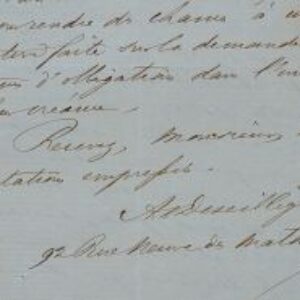 prendre de chance à
faite sur la demande
d'obligation dans l'in
créance.
Recevez, monsieur,
tation empressée.
92 Rue Neuve des Math